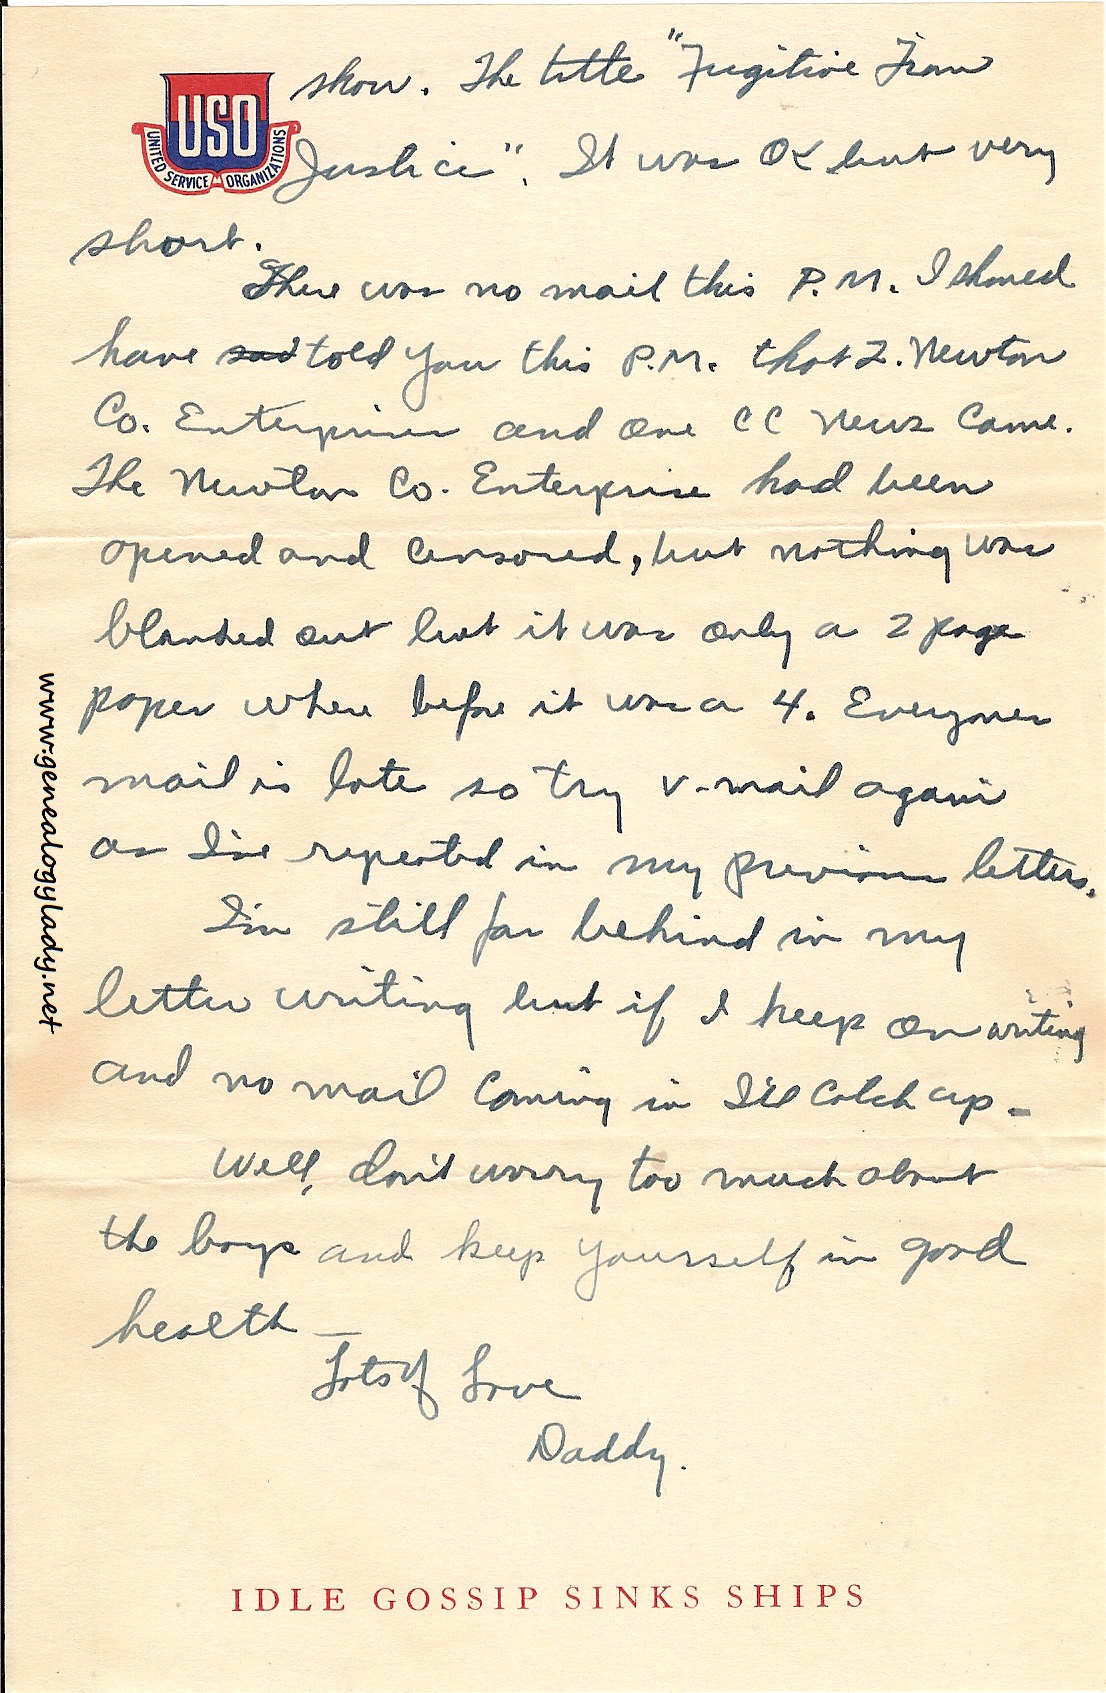 USO
UNITED SERVICE ORGANIZATIONS
show. The title "Fugitive From
Justice". It was OK but very
short.
There was no mail this P.M. I should
have said told you this P.M. that 2. Newton
Co. Enterprises and one CC News came.
The Newton Co. Enterprise had been
opened and censored, but nothing was
blanked out but it was only a 2 page
paper where before it was a 4. Everyones
mail is late so try v-mail again
as I've repeated in my previous letters.
I'm still far behind in my
letter writing but if I keep on writing
and no mail coming in I'll catch up -
Well, don't worry too much about
the boys and keep yourself in good
health —
Lots of Love
Daddy.
IDLE GOSSIP SINKS SHIPS
www.genealogylady.net